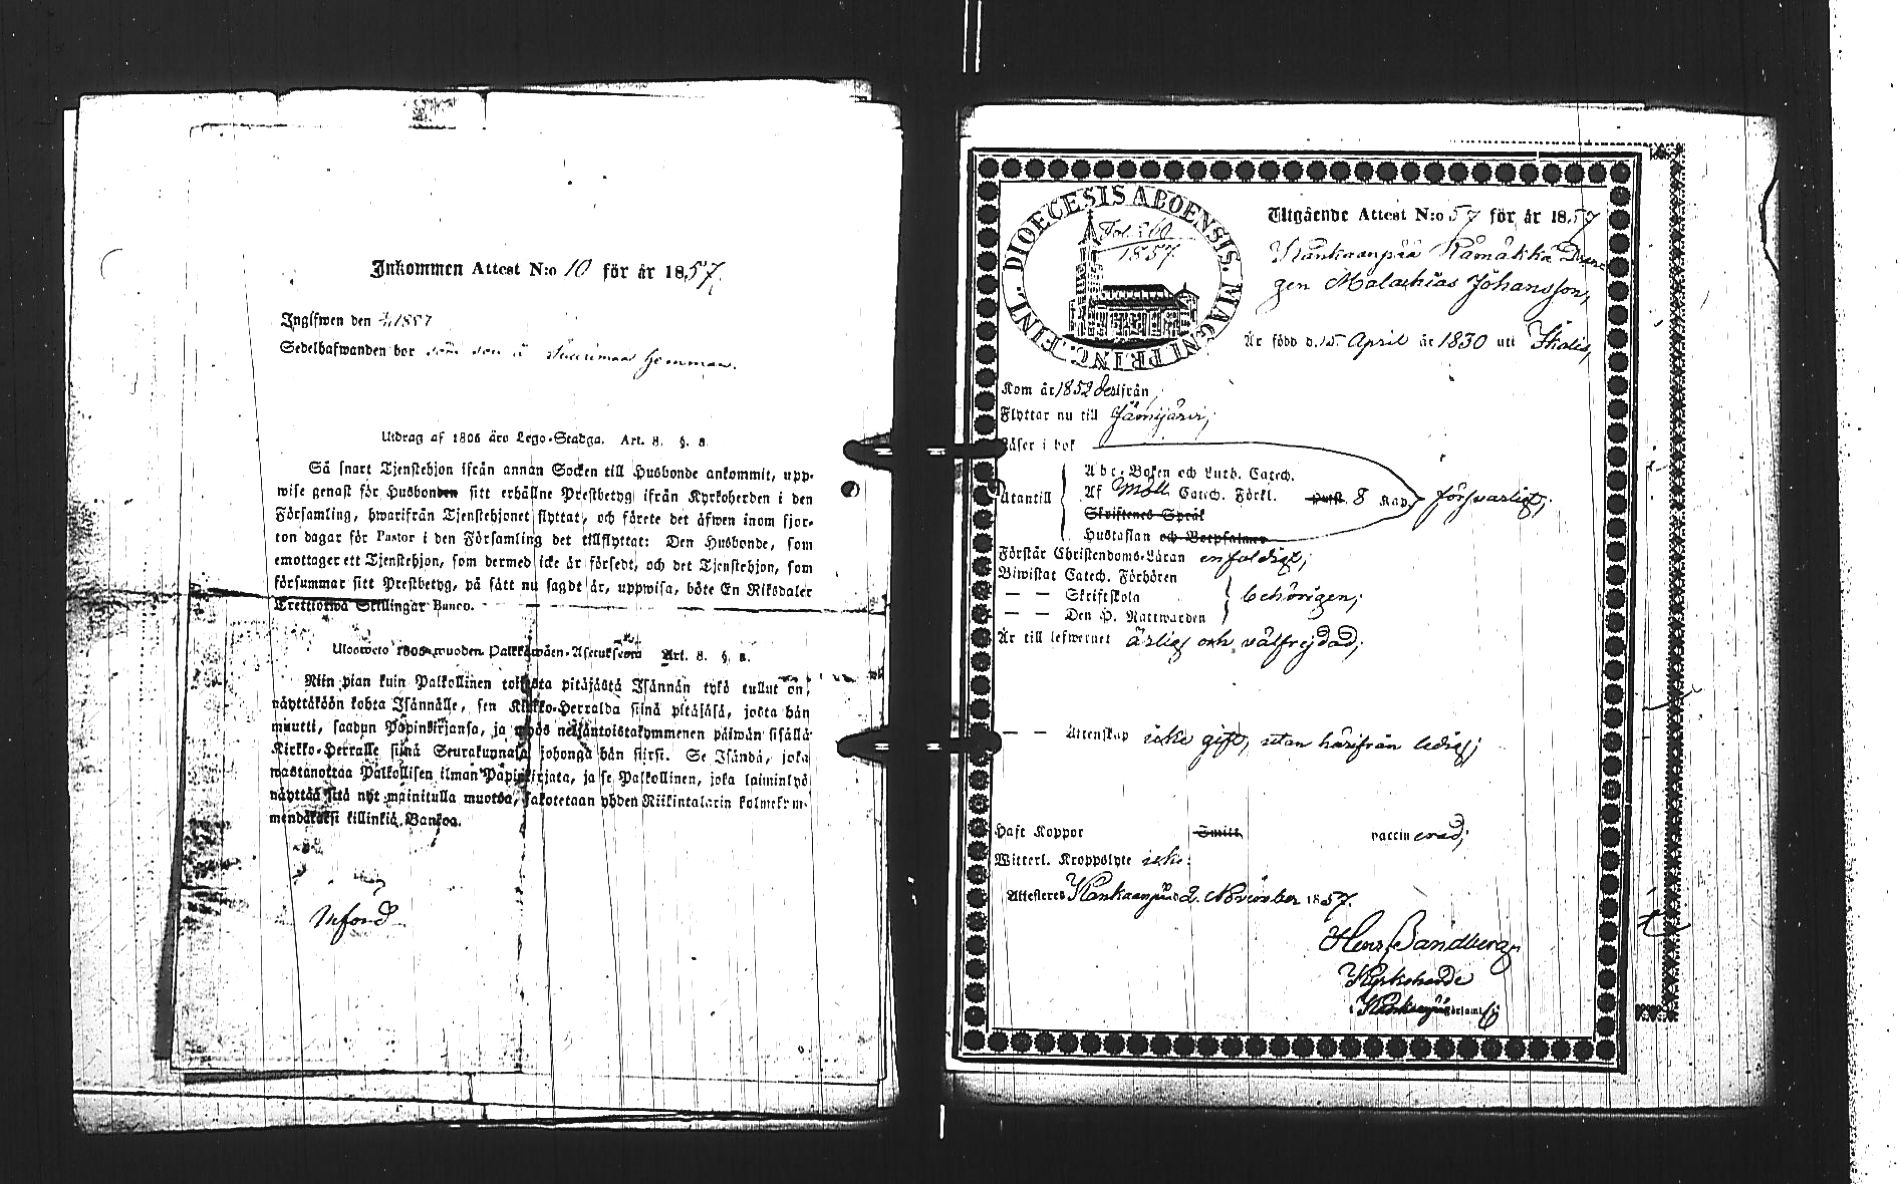 Inkommen Attest N:o 10 för år 1857.
Inglfwen den 1857
Sedelhafwanden bor son å hemman.
Utdrag af 1805 års Lego-Stadga. Art. 8. §. 8.
Så snart Tjenstehjon ifrån annan Socken till Husbonde ankommit, upp-
wise genast för Husbonden sitt erhållne Prestbetyg ifrån Kyrkoherden i den
Församling, hwarifrån Tjenstehjonet flyttat, och förete det äfwen inom fjor-
ton dagar för Pastor i den Församling det tillflyttat: Den Husbonde, som
emottager ett Tjenstehjon, som dermed icke är försedt, och det Tjenstehjon, som
försummar sitt Prestbetyg, på sätt nu sagdt är, uppwisa, böte En Riksdaler
Trettiotwå Skillingar Banco.
Ulosweto 1805 wuoden Palkkawäen-Asetuksesta Art. 8. §. 8.
Niin pian kuin Palkollinen toisesta pitäjästä Isännän tykö tullut on,
näyttäköön kohta Isännälle, sen Kirkko-Herralda siinä pitäjäsä, josta hän
muutti, saadun Papinkirjansa, ja myös neljäntoistakymmenen päiwän sisällä
Kirkko-Herralle siinä Seurakunnasa johonga hän siirsi. Se Isändä, joka
wastanottaa Palkollisen ilman Papinkirjata, ja se Palkollinen, joka laiminlyö
näyttää sitä nyt mainitulla muotoa, sakotetaan yhden Riikintalarin kolmekym-
mendäkaksi killinkiä Bankoa.
FINL. DIOECESIS ABOENSIS. MAGNI PRINC.
Fol. 260
1857.
Utgående Attest N:o 57 för år 1857
Kankaanpää Rämäkkä Drän
gen Malachias Johansson,
Är född d. 15 April år 1830 uti Ikalis,
Kom år 1852 derifrån
Flyttar nu till Jämijärvi;
Läser i bok
Abc-Boken och Luth. Catech.
Utantill Af Möll. Catech. Förkl. 8 Kap försvarligt;
Skriftenes Språk
Hustaflan och Botpsalmer
Förstår Christendoms-Läran enfaldigt;
Biwistat Catech. Förhören
— — Skriftskola behörigen;
— — Den H. Nattwarden
Är till lefwernet ärlig och välfrejdad;
— — Äktenskap icke gift, utan härifrån ledig;
Haft Koppor Smitt vaccinerad;
Witterl. Kroppslyte icke:
Attesteres Kankaanpää d 2. November 1857.
Henr. Sandberg
Kyrkoherde
i Kankaanpää församl.